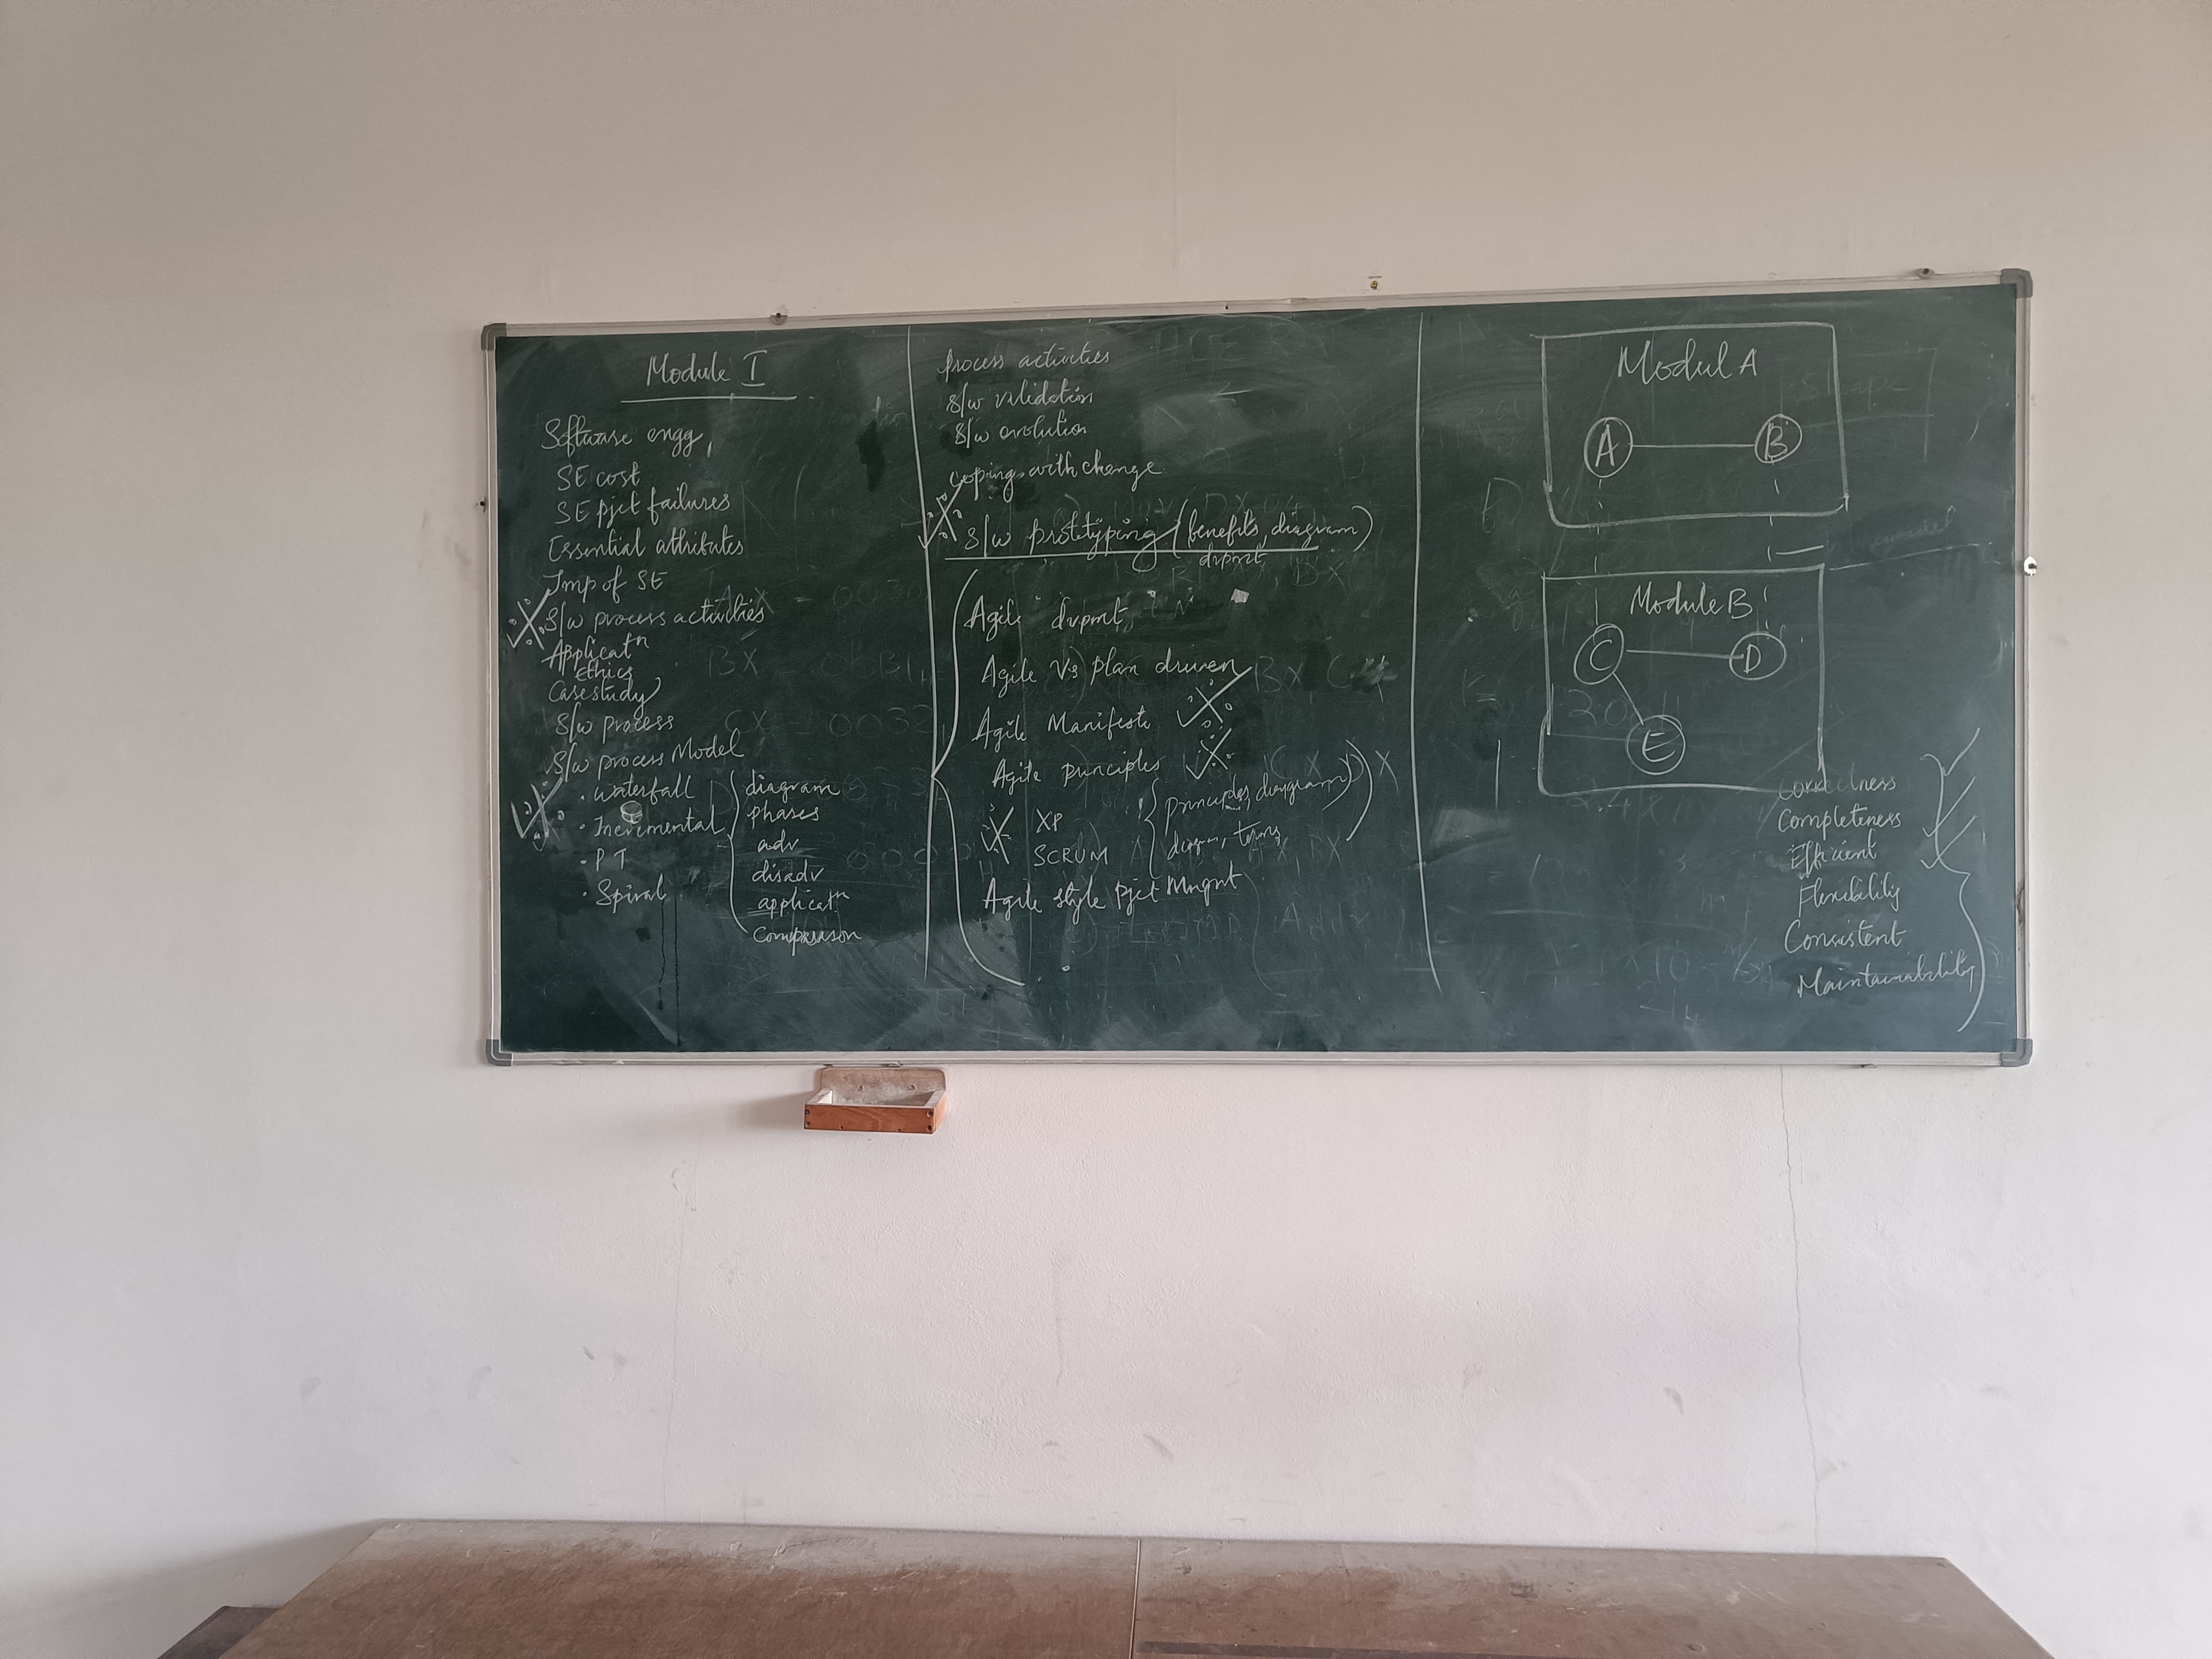 Module I
Software engg,
SE cost
SE pjct failures
Essential attributes
Imp of SE
S/w process activities
Applicatn
Ethics
Casestudy
S/w process
S/w process Model
. waterfall
. Incremental
. PT
. Spiral
diagram
phases
adv
disadv
applicatn
Comparison
process activities
S/w validation
S/w evolution
coping with change
S/w prototyping (benefits, diagram)
dvpmt
Agile dvpmt
Agile Vs plan driven
Agile Manifesto
Agile principles
XP
SCRUM
principles, diagram)
diagm, terms
Agile style Pjct Mngnt
Modul A
A
B
Module B
C
D
E
Correctness
Completeness
Efficient
Flexibility
Consistent
Maintainability